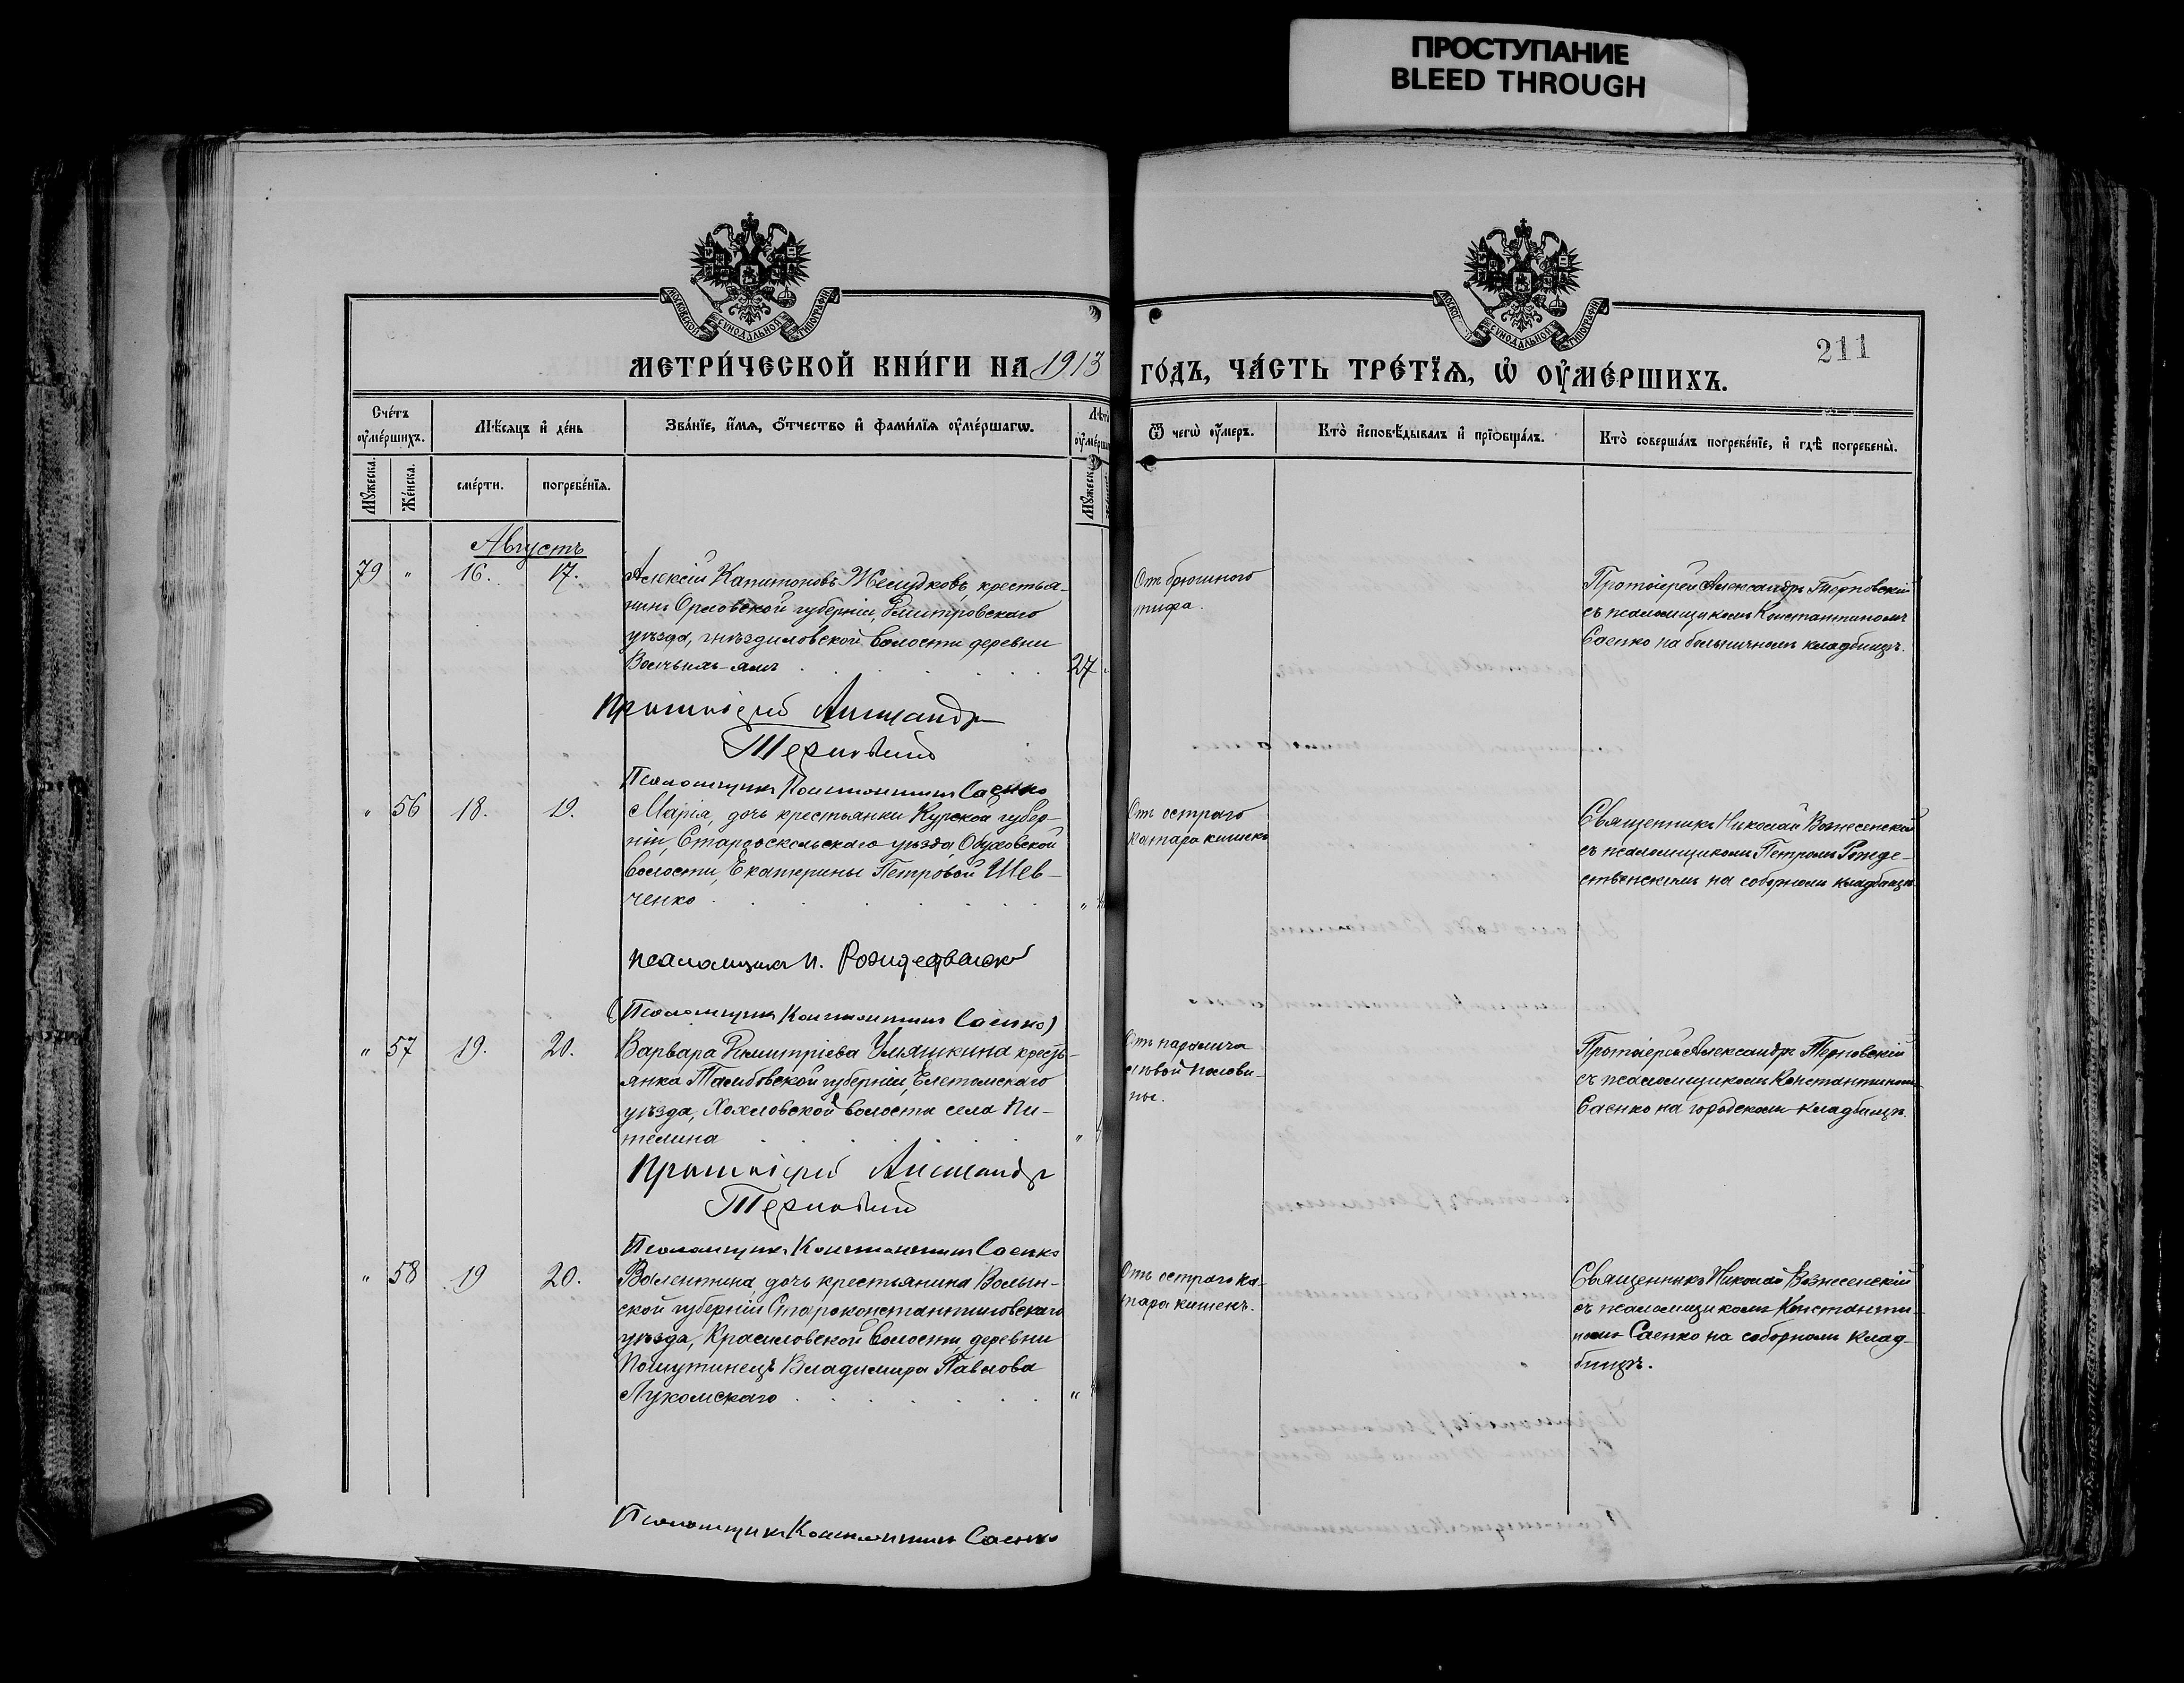 ПРОСТУПАНИЕ
BLEED THROUGH
МОСКОВСКОЙ СѴНОДАЛЬНОЙ ТИПОГРАФІИ
СѴНОДАЛЬНОЙ ТИПОГРАФІИ
211
МЕТРИ́ЧЕСКОЙ КНИ́ГИ НА 1913 ГО́ДЪ, ЧА́СТЬ ТРЕ́ТЇѦ, Ѡ҆ ОУ҆МЕ́РШИХЪ.
Сче́тъ оу҆ме́ршихъ.
Мѣ́сяцъ и҆ де́нь
Зва́нїе, и҆́мѧ, ѻ҆́тчество и҆ фами́лїѧ оу҆ме́ршагѡ.
Ѿ чегѡ̀ оу҆́меръ.
Кто̀ и҆сповѣ́дывалъ и҆ прїѡбща́лъ.
Кто̀ соверша́лъ погребе́нїе, и҆ гдѣ̀ погребены̀.
Мꙋ́жеска.
Же́нска.
сме́рти.
погребе́нїѧ.
Мꙋ́жеска.
Августъ
79 " 16. 17.
Алексій Капитоновъ Желудковъ, крестья-
нинъ Орловской губерніи, Дмитровскаго
уѣзда, гнѣздиловской волости деревни
Волчьихъ-ямъ 27
Отъ брюшного
тифа.
Протоіерей Александръ Терновскій
съ псаломщикомъ Константиномъ
Саенко на больничномъ кладбищѣ.
Протоіерей Александръ
Терновскій
Псаломщикъ Константинъ Саенко
" 56 18. 19.
Марія, дочь крестьянки Курской губер-
ніи, Старооскольскаго уѣзда, Обуховской
волости, Екатерины Петровой Шев-
ченко "
Отъ остраго
катара кишекъ
Священникъ Николай Вознесенскій
съ псаломщикомъ Петромъ Рожде-
ственскимъ на соборномъ кладбищѣ.
псаломщикъ П. Рождественскій
(Псаломщикъ Константинъ Саенко)
" 57 19. 20.
Варвара Димитріева Уляшкина кресть-
янка Тамбовской губерніи, Елатомскаго
уѣзда, Хохловской волости села Пи-
телина "
Отъ паралича
лѣвой полови-
ны.
Протоіерей Александръ Терновскій
съ псаломщикомъ Константиномъ
Саенко на городскомъ кладбищѣ.
Протоіерей Александръ
Терновскій
Псаломщикъ Константинъ Саенко
" 58 19 20.
Валентина, дочь крестьянина Волын-
ской губерніи Староконстантиновскаго
уѣзда, Красиловской волости, деревни
Пошутинецъ Владимира Павлова
Лукомскаго "
Отъ остраго ка-
тара кишекъ.
Священникъ Николай Вознесенскій
съ псаломщикомъ Константи-
номъ Саенко на соборномъ клад-
бищѣ.
Псаломщикъ Константинъ Саенко